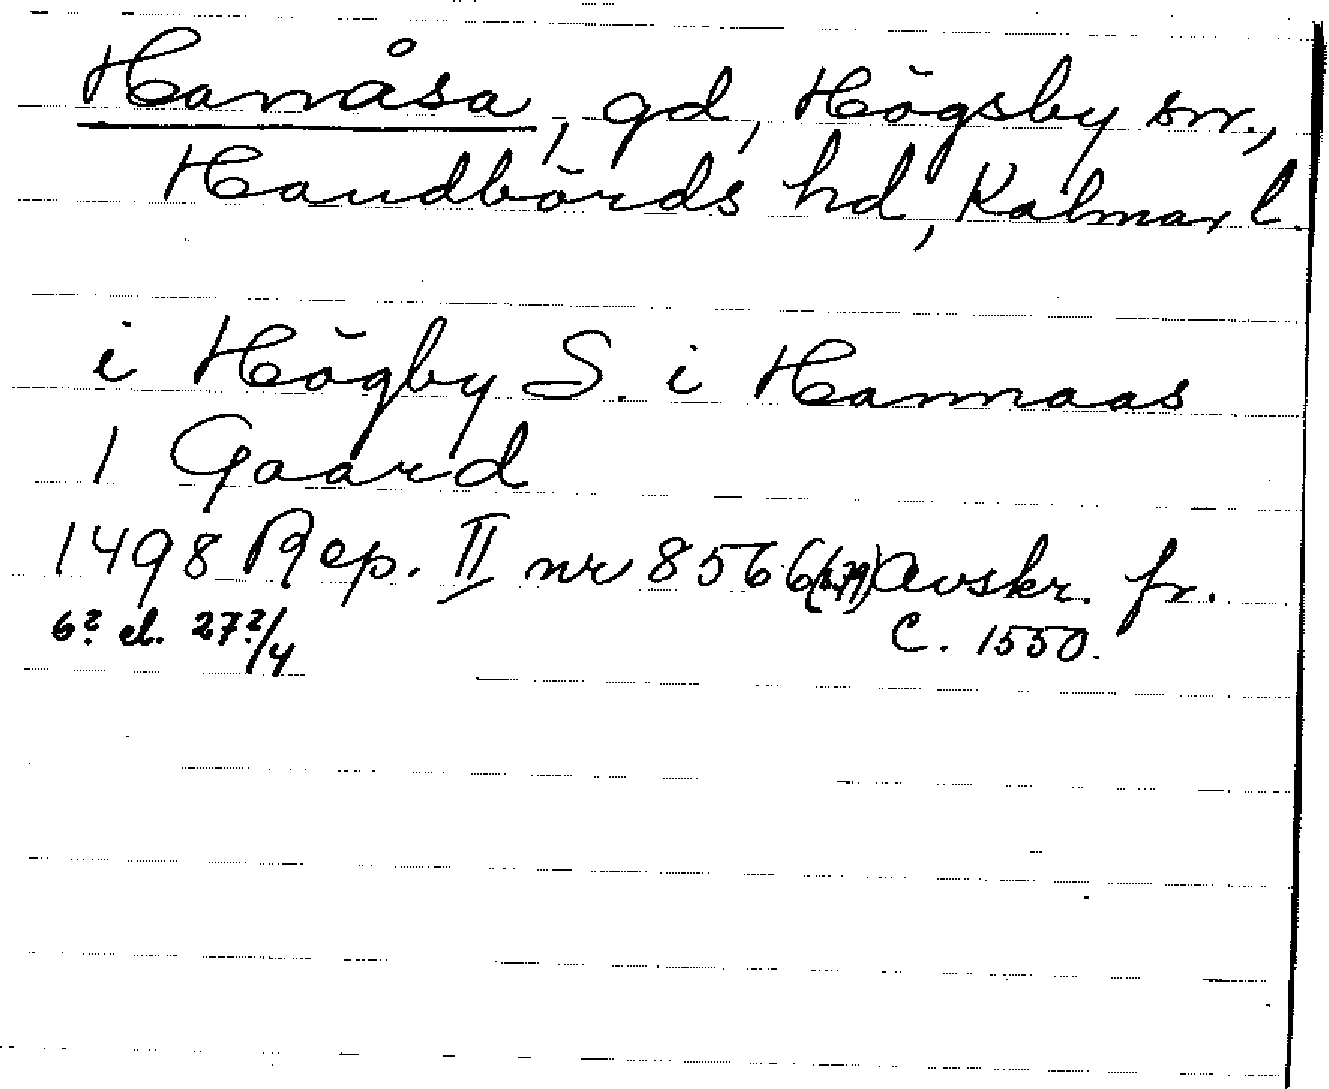 Hanåsa, gd, Högsby sn.,
Handbörds hd, Kalmar l.
i Högby S. i Hannaas
1 Gaard
1498 Rep. II nr 8566 Avskr. fr.
6? el. 27?/4 C. 1550.